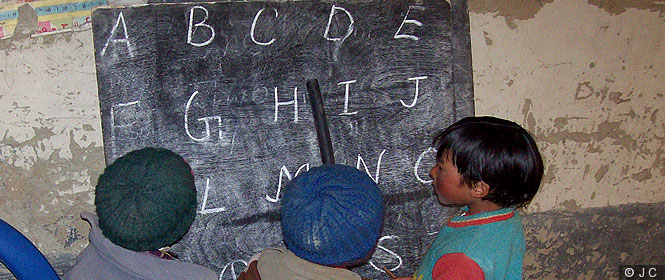 A B C D E
F G H I J
L M N O
S
© J C